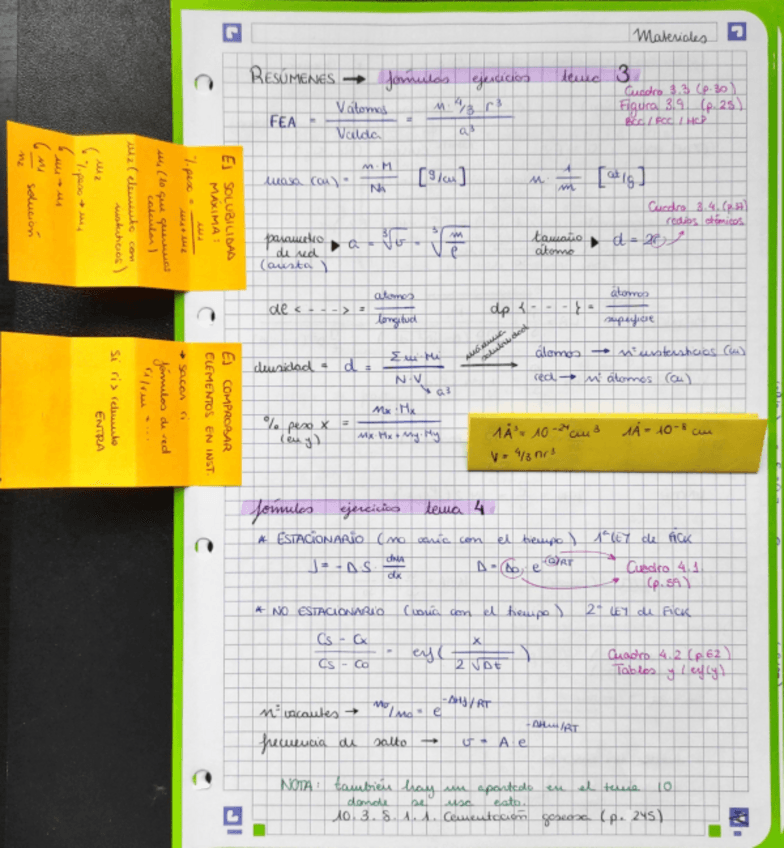 Materiales
RESÚMENES → fórmulas ejercicios tema 3
Cuadro 3.3 (p.30)
Figura 3.9 (p.25)
BCC / FCC / HCP
FEA = Vátomos / Vcelda = n · 4/3 r³ / a³
masa (cu) = n · M / NA [g/cu]
n · 1/m [at/g]
Cuadro 3.4.
radios atómicos
parámetro de red (arista) ▶ a = ∛v = ∛(m/ρ)
tamaño átomo ▶ d = 2r
dl < - - - > = átomos / longitud
dp { - - - } = átomos / superficie
densidad = d = Σ ni · Mi / N · V
a³
máxima solubilidad
átomos → nº intersticios (cu)
red → nº átomos (cu)
% peso x (en y) = Mx · Hx / Mx · Hx + My · Hy
1Å³ = 10⁻²⁴ cm³ 1Å = 10⁻⁸ cm
V = 4/3 πr³
EJ SOLUBILIDAD
MÁXIMA:
% peso = m1 / m1+m2
m1 (lo que queremos
calcular)
m2 (elemento con
intersticios)
m2
% peso → m1
m1 → n1
n1 / n2 solución
EJ COMPROBAR
ELEMENTOS EN INST.
→ sacar ri
fórmulas de red
ri/rm = ...
si ri > relemento
ENTRA
fórmulas ejercicios tema 4
* ESTACIONARIO (no varía con el tiempo) 1ª LEY de FICK
J = -D S · dnA / dx
D = D0 · e^-Q/RT
Cuadro 4.1.
(p.59)
* NO ESTACIONARIO (varía con el tiempo) 2ª LEY de FICK
Cs - Cx / Cs - C0 = erf ( x / 2 √Dt )
Cuadro 4.2 (p.62)
Tablas y / erf(y)
nº vacantes → nv/n0 = e^-ΔHf/RT
frecuencia de salto → v = A · e^-ΔHm/RT
NOTA: también hay un apartado en el tema 10
donde se usa esto.
10.3.8.1.1. Cementación gaseosa (p. 245)